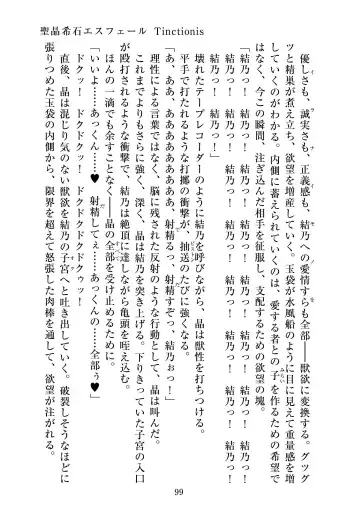 聖晶希石エスフェール Tinctionis
優しさも、誠実さも、正義感も、結乃への愛情すらも全部――獣欲に変換する。グツグ
ツと精巣が煮え立ち、欲望を増産していく。玉袋が水風船のように目に見えて重量感を増
していくのがわかる。内側に蓄えられていくのは、愛する者との子を作るための希望で
はなく、今この瞬間、注ぎ込んだ相手を征服し、支配するための欲望の塊。
「結乃っ！　結乃っ！　結乃っ！　結乃っ！　結乃っ！　結乃っ！　結乃っ！　結乃っ！
結乃っ！　結乃っ！　結乃っ！　結乃っ！　結乃っ！　結乃っ！　結乃っ！　結乃っ！
結乃っ！」
壊れたテープレコーダーのように結乃を呼びながら、晶は獣性を打ちつける。
平手で打たれるような打擲の衝撃が、抽送のたびに強くなる。
「あ、ああ、ああああああああ、射精るっ、射精すぞっ、結乃ぉっ！」
理性による言葉ではなく、脳に残された反射のような行動として、晶は叫んだ。
これまでよりもさらに強く、深く、晶は結乃を突き上げる。下りきっていた子宮の入口
が殴打されるような衝撃で、結乃は絶頂に達しながら亀頭を咥え込む。
ほんの一滴でも余すことなく――晶の全部を受け止めるために。
「いいよ……あっくん……♥　射精してぇ……♥　あっくんの……全部ぅ♥」
ドクッ！　ドクッ！　ドクドクドクドクゥッ！
直後、晶は混じり気のない獣欲を結乃の子宮へと吐き出していく。破裂しそうなほどに
張りつめた玉袋の内側から、限界を超えて怒張した肉棒を通して、欲望が注がれる。
99